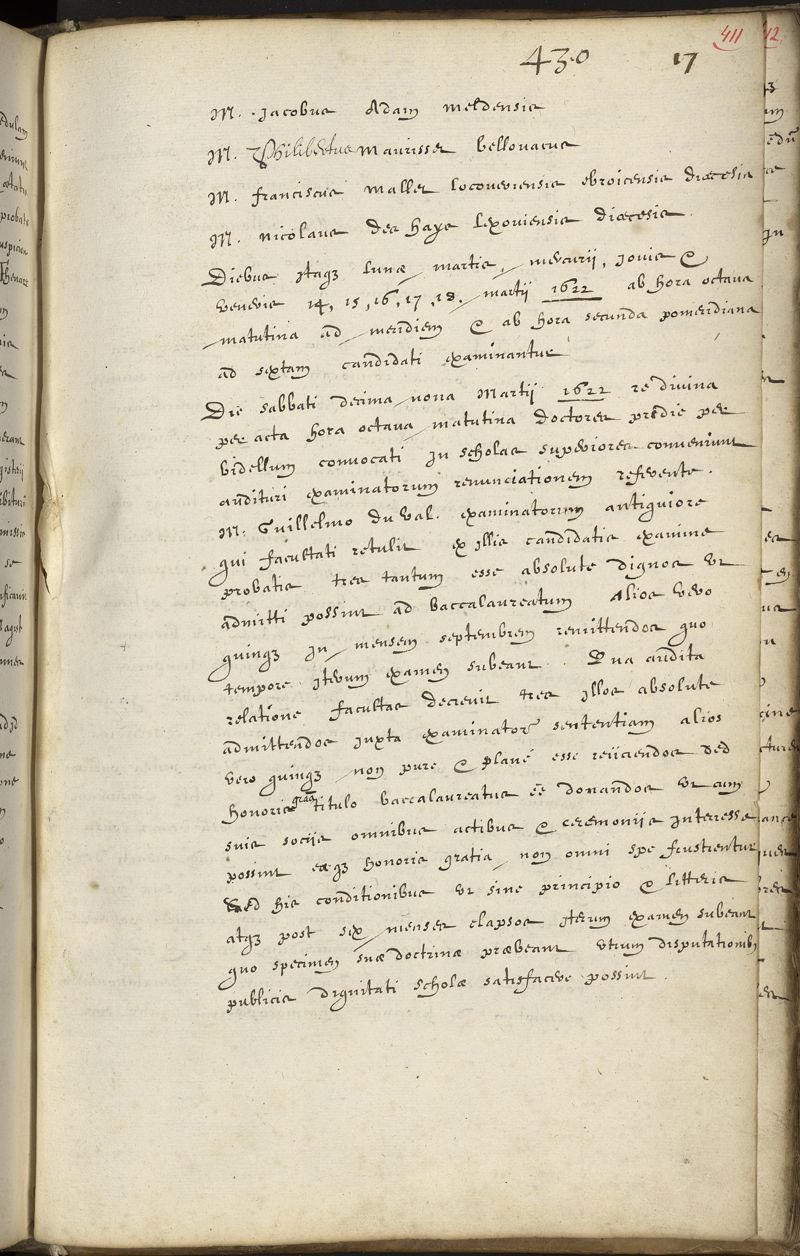 411
430 17
M. Jacobus Adam meldensis
M. Philibertus Maurisset bellovacus
M. franciscus mallet locoveriensis ebroicensis diœcesis
M. nicolaus des haye lexoviensis diœcesis.
Diebus itaqꝫ lunæ, martis, mercurij, jovis &
veneris 14, 15, 16, 17, 18, martij 1622 ab hora octava
matutina ad meridiem & ab hora secunda pomeridiana
ad sextam candidati examinantur
Die sabbati decima nona Martij 1622 re divina
peracta hora octava matutina doctores pridie per
bidellum convocati in scholas superiores conveniunt
audituri examinatorum renunciationem referente.
M. Guillelmo du Val. examinatorum antiquiore
qui facultati retulit ex illis candidatis examine
probatis tres tantum esse absolute dignos ut
admitti possint ad baccalaureatum Alios vero
quinqꝫ in mensem septembrem remittendos quo
tempore iterum examen subeant. Qua audita
relatione facultas decrevit tres illos absolute
admittendos juxta examinatorꝫ sententiam alios
vero quinqꝫ non pure & plané esse reiiciendos sed
honoris gratia titulo baccalaureatus eē donandos ut cum
suis socijs omnibus actibus & ceremonijs interesse
possint eaqꝫ honoris gratia non omni spe frustrentur
sed his conditionibus ut sine principio & litteris
atqꝫ post sex menses elapsos iterum examen subeant
quo specimen suæ doctrinæ præbeant utrum disputationibꝫ
publicis dignitati scholæ satisfacere possint.